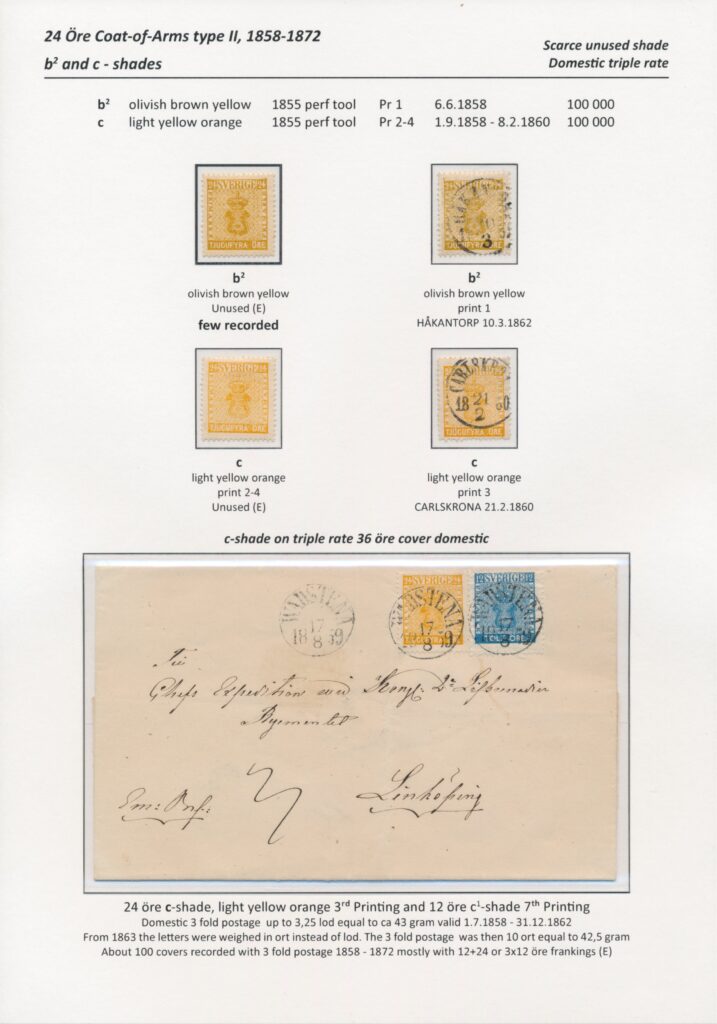 24 Öre Coat-of-Arms type II, 1858-1872
Scarce unused shade
b² and c - shades
Domestic triple rate
b² olivish brown yellow 1855 perf tool Pr 1 6.6.1858 100 000
c light yellow orange 1855 perf tool Pr 2-4 1.9.1858 - 8.2.1860 100 000
24 SVERIGE 24
TJUGUFYRA ÖRE
b²
olivish brown yellow
Unused (E)
few recorded
24 SVERIGE 24
10
3
TJUGUFYRA ÖRE
b²
olivish brown yellow
print 1
HÅKANTORP 10.3.1862
24 SVERIGE 24
TJUGUFYRA ÖRE
c
light yellow orange
print 2-4
Unused (E)
21
2
TJUGUFYRA ÖRE
c
light yellow orange
print 3
CARLSKRONA 21.2.1860
c-shade on triple rate 36 öre cover domestic
WADSTENA
17
18 59
8
24 SVERIGE 24
WADSTENA
17
8
12 SVERIGE 12
WADSTENA
17
8
Till
Chefs Expedition
Linköping
24 öre c-shade, light yellow orange 3rd Printing and 12 öre c¹-shade 7th Printing
Domestic 3 fold postage up to 3,25 lod equal to ca 43 gram valid 1.7.1858 - 31.12.1862
From 1863 the letters were weighed in ort instead of lod. The 3 fold postage was then 10 ort equal to 42,5 gram
About 100 covers recorded with 3 fold postage 1858 - 1872 mostly with 12+24 or 3x12 öre frankings (E)